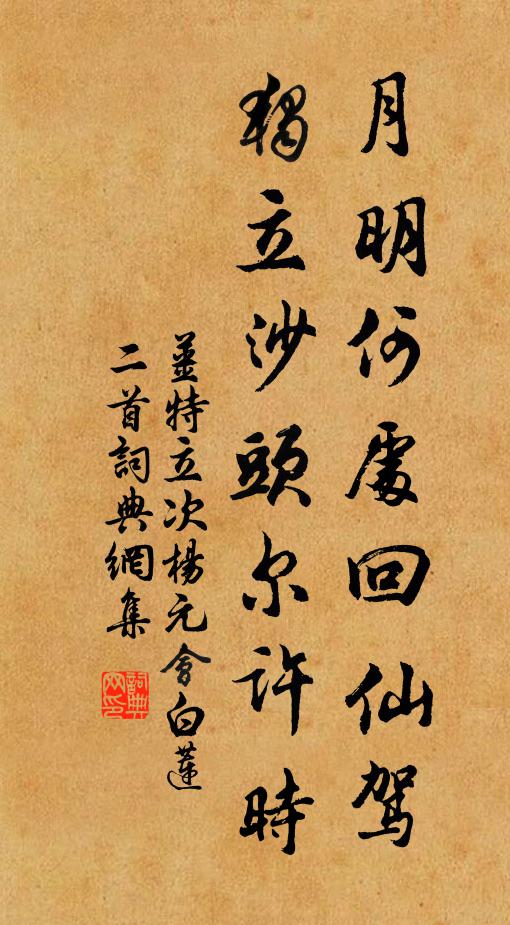 月明何處回仙駕
獨立沙頭尔許時
薑特立次楊元會白蓮
二首詞典網集
詞典网印